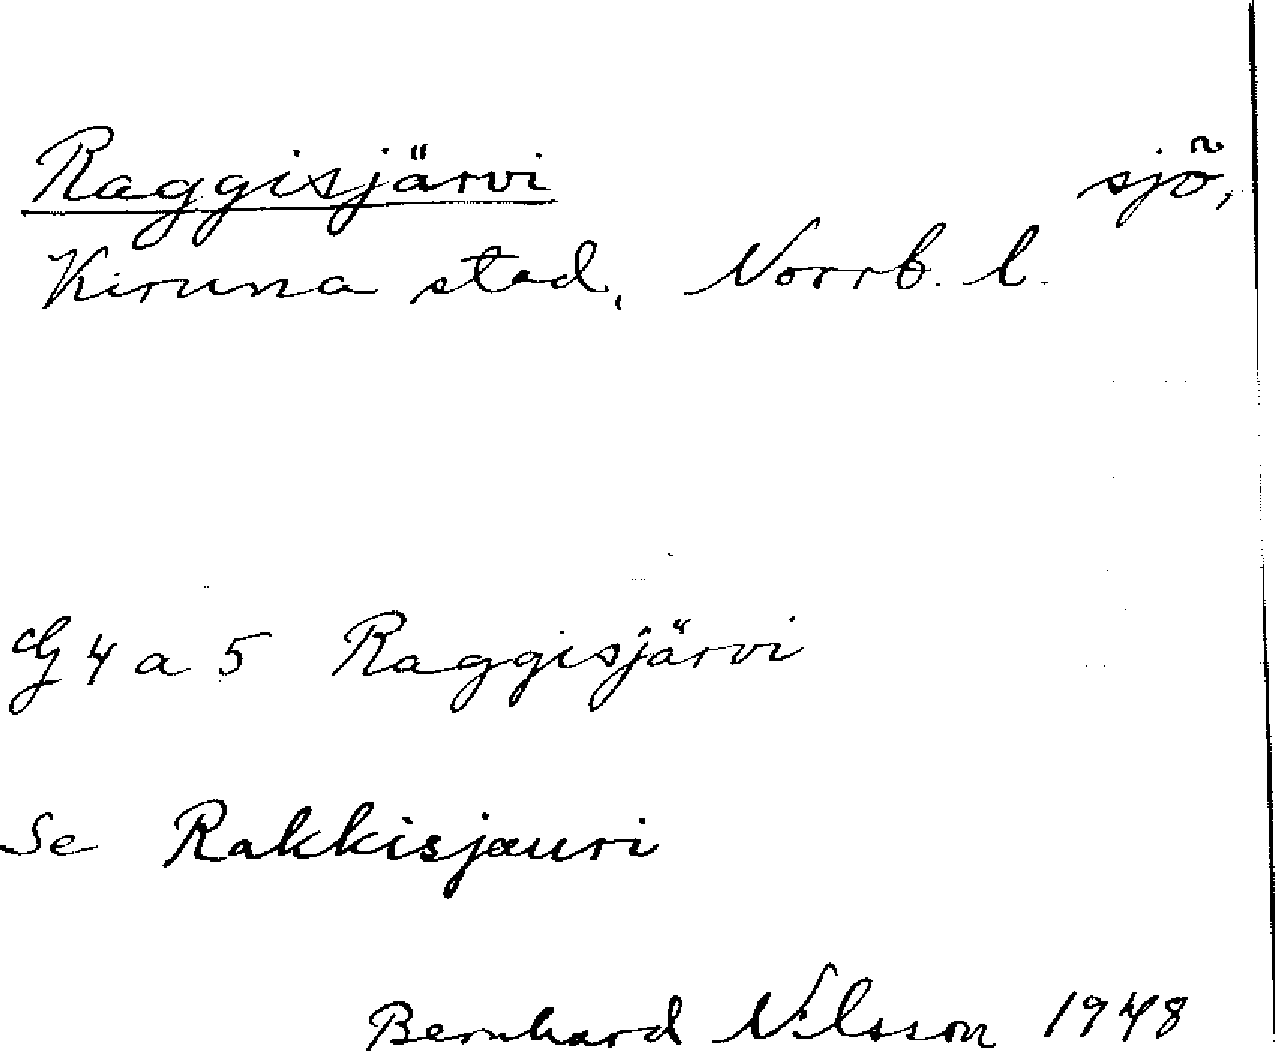 Raggisjärvi sjö,
Kiruna stad, Norrb. l.
G 4 a 5 Raggisjärvi
Se Rakkisjauri
Bernhard Nilsson 1948